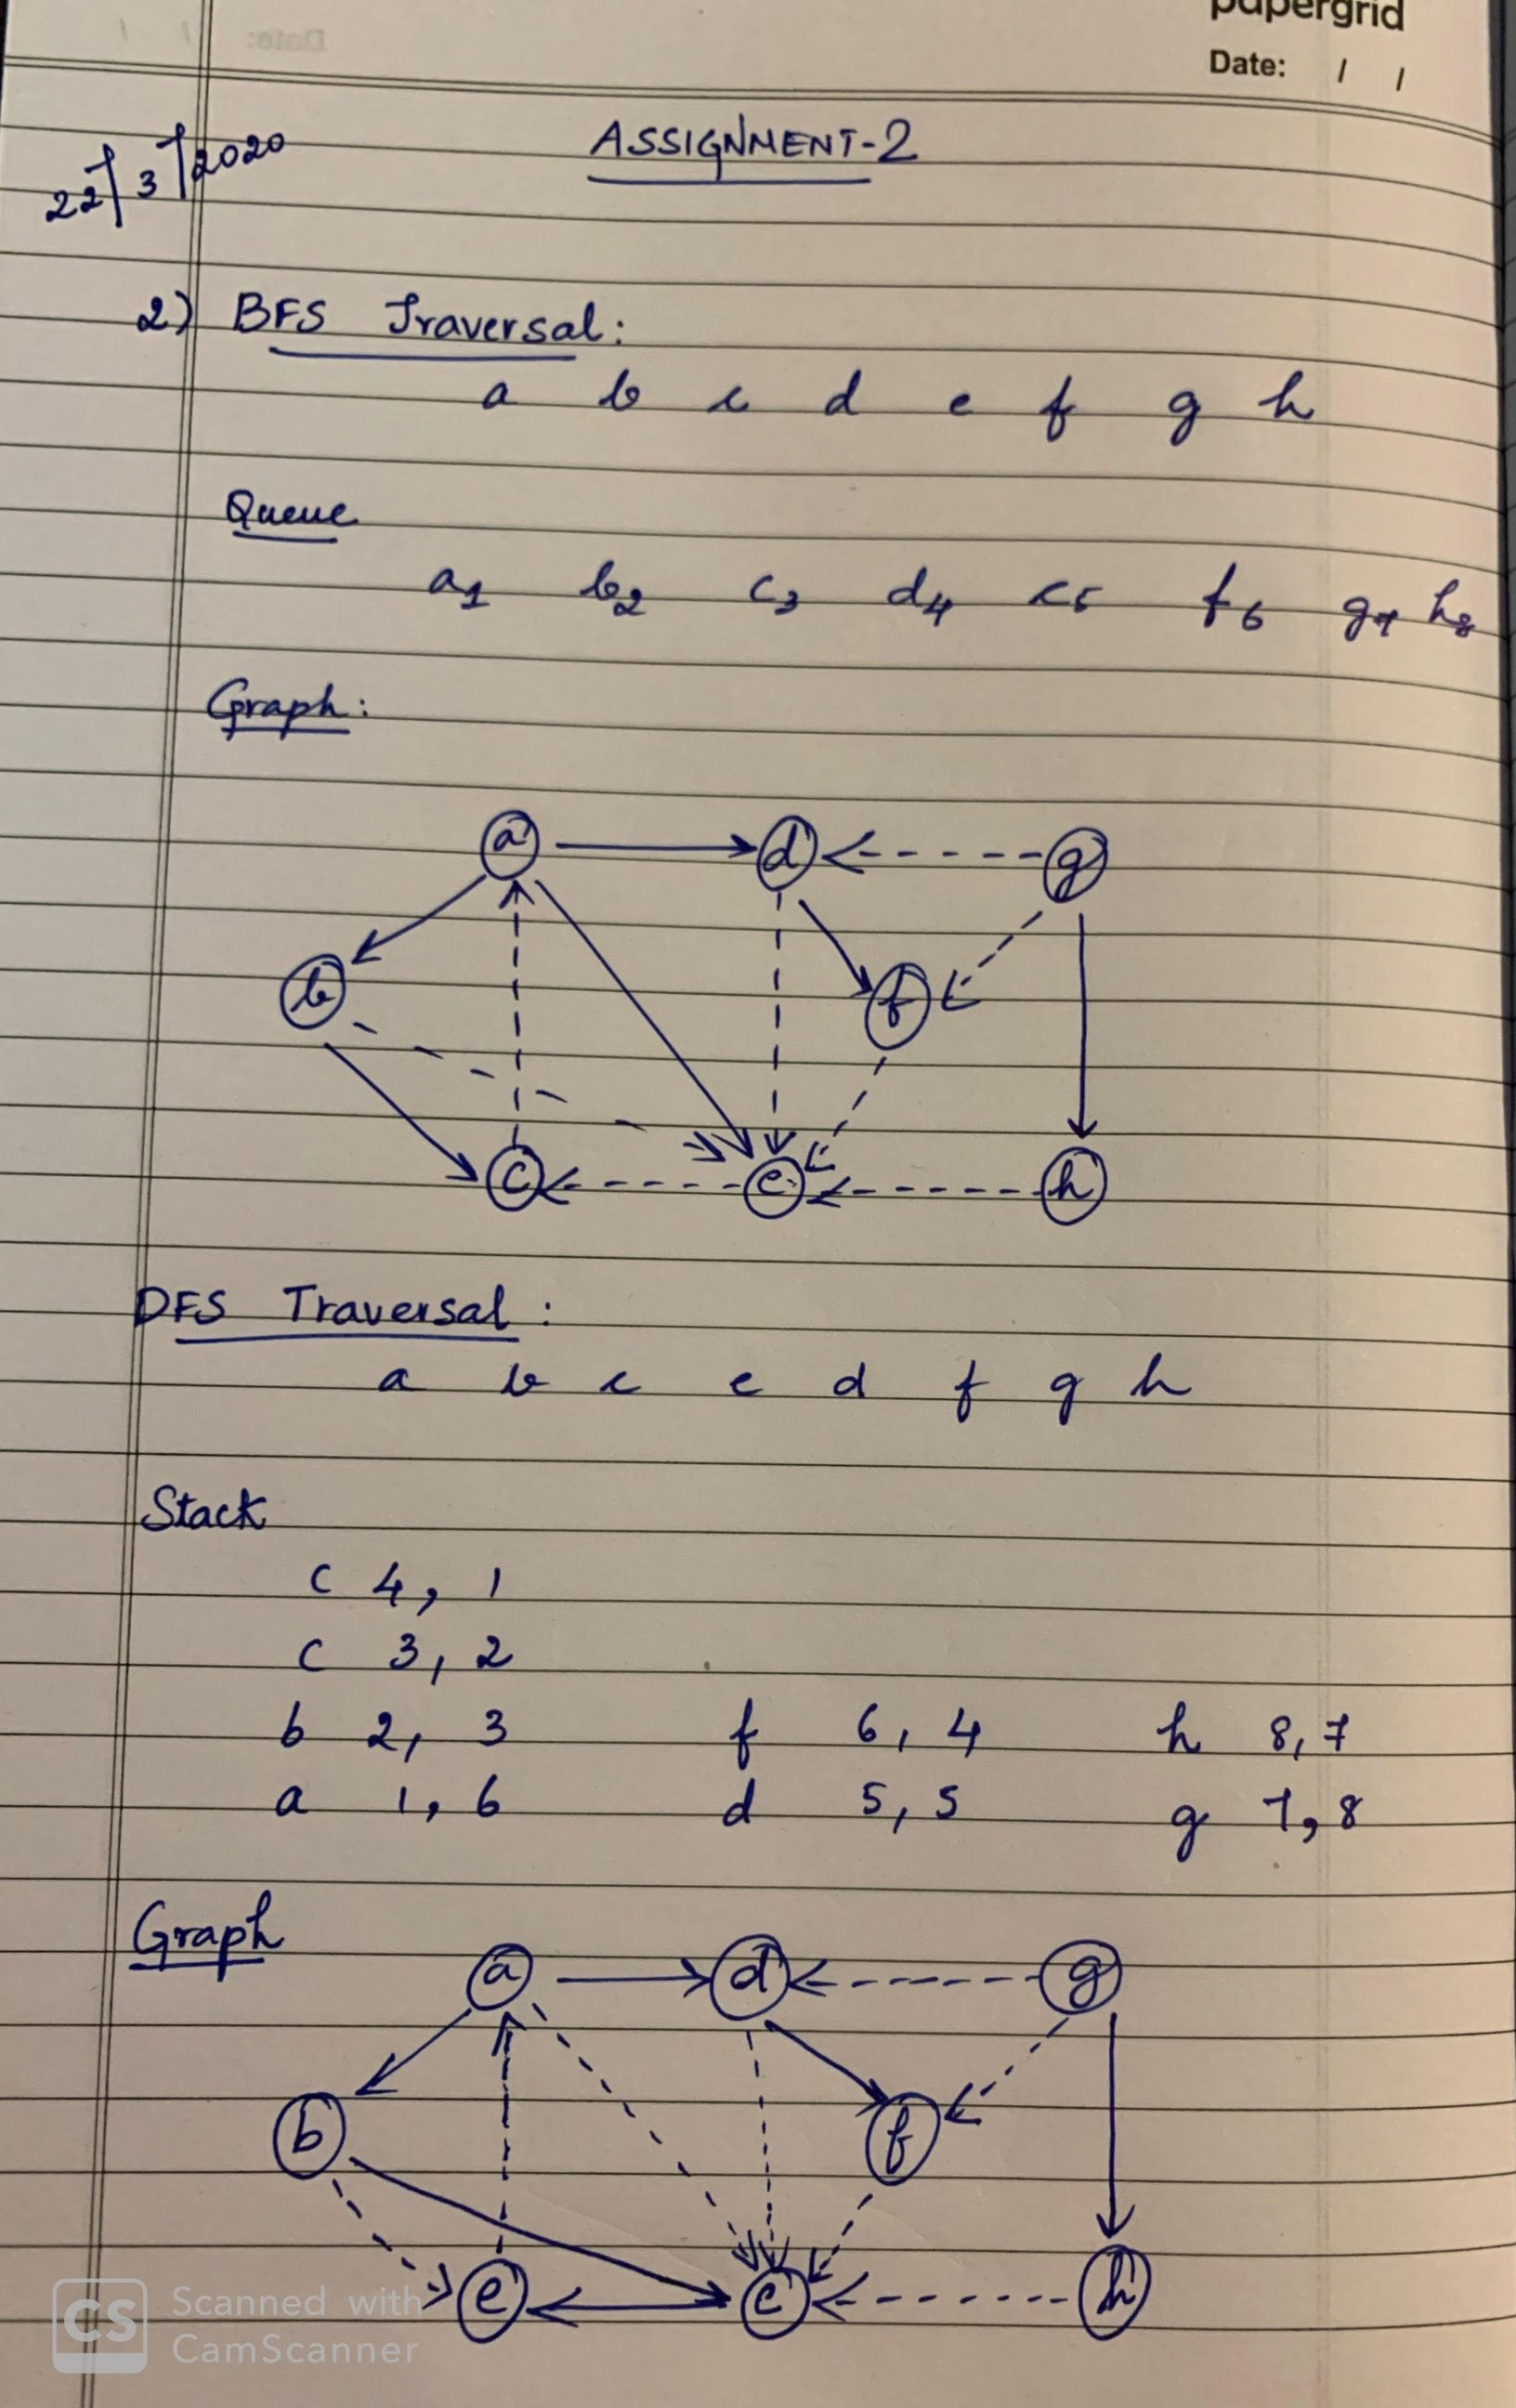 papergrid
Date: / /
22/3/2020
ASSIGNMENT-2
2) BFS Traversal:
a b c d e f g h
Queue
a1 b2 c3 d4 e5 f6 g7 h8
Graph:
a d g
b f
c e h
DFS Traversal:
a b c e d f g h
Stack
c 4, 1
c 3, 2
b 2, 3 f 6, 4 h 8, 7
a 1, 6 d 5, 5 g 7, 8
Graph
a d g
b f
e e h
CS Scanned with
CamScanner